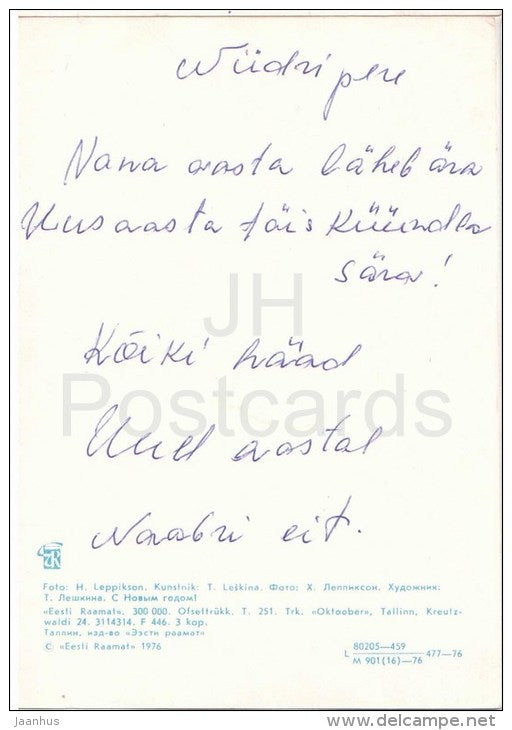 Nüdri pere
Nana aasta läheb ära
Uus aasta täis küündla
sära!
Kõiki hääd
Uuel aastal
Naabri eit.
JH
Postcards
Foto: H. Leppikson. Kunstnik: T. Leškina. Фото: Х. Леппиксон. Художник:
Т. Лешкина. С Новым годом!
«Eesti Raamat». 300 000. Ofsettrükk. T. 251. Trk. «Oktoober», Tallinn, Kreutz-
waldi 24. 3114314. F 446. 3 kop.
Таллин, изд-во «Ээсти раамат»
© «Eesti Raamat» 1976
L 80205—459
M 901(16)—76 477—76
jaanhus
www.delcampe.net